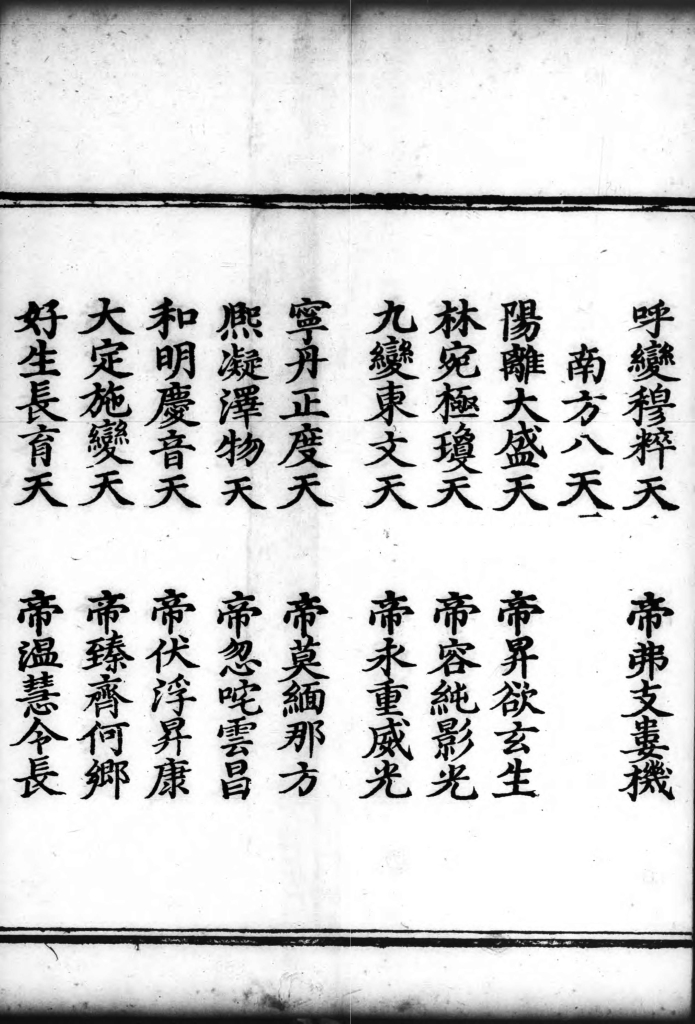 呼變穆粹天　帝弗支婁機
南方八天
陽離大盛天　帝昇欲玄生
林宛極瓊天　帝容純影光
九變東文天　帝永重威光
寧丹正度天　帝莫緬那方
熈凝澤物天　帝忽咤雲昌
和明慶音天　帝伏浮昇康
大定施變天　帝臻齊何鄉
好生長育天　帝温慧令長